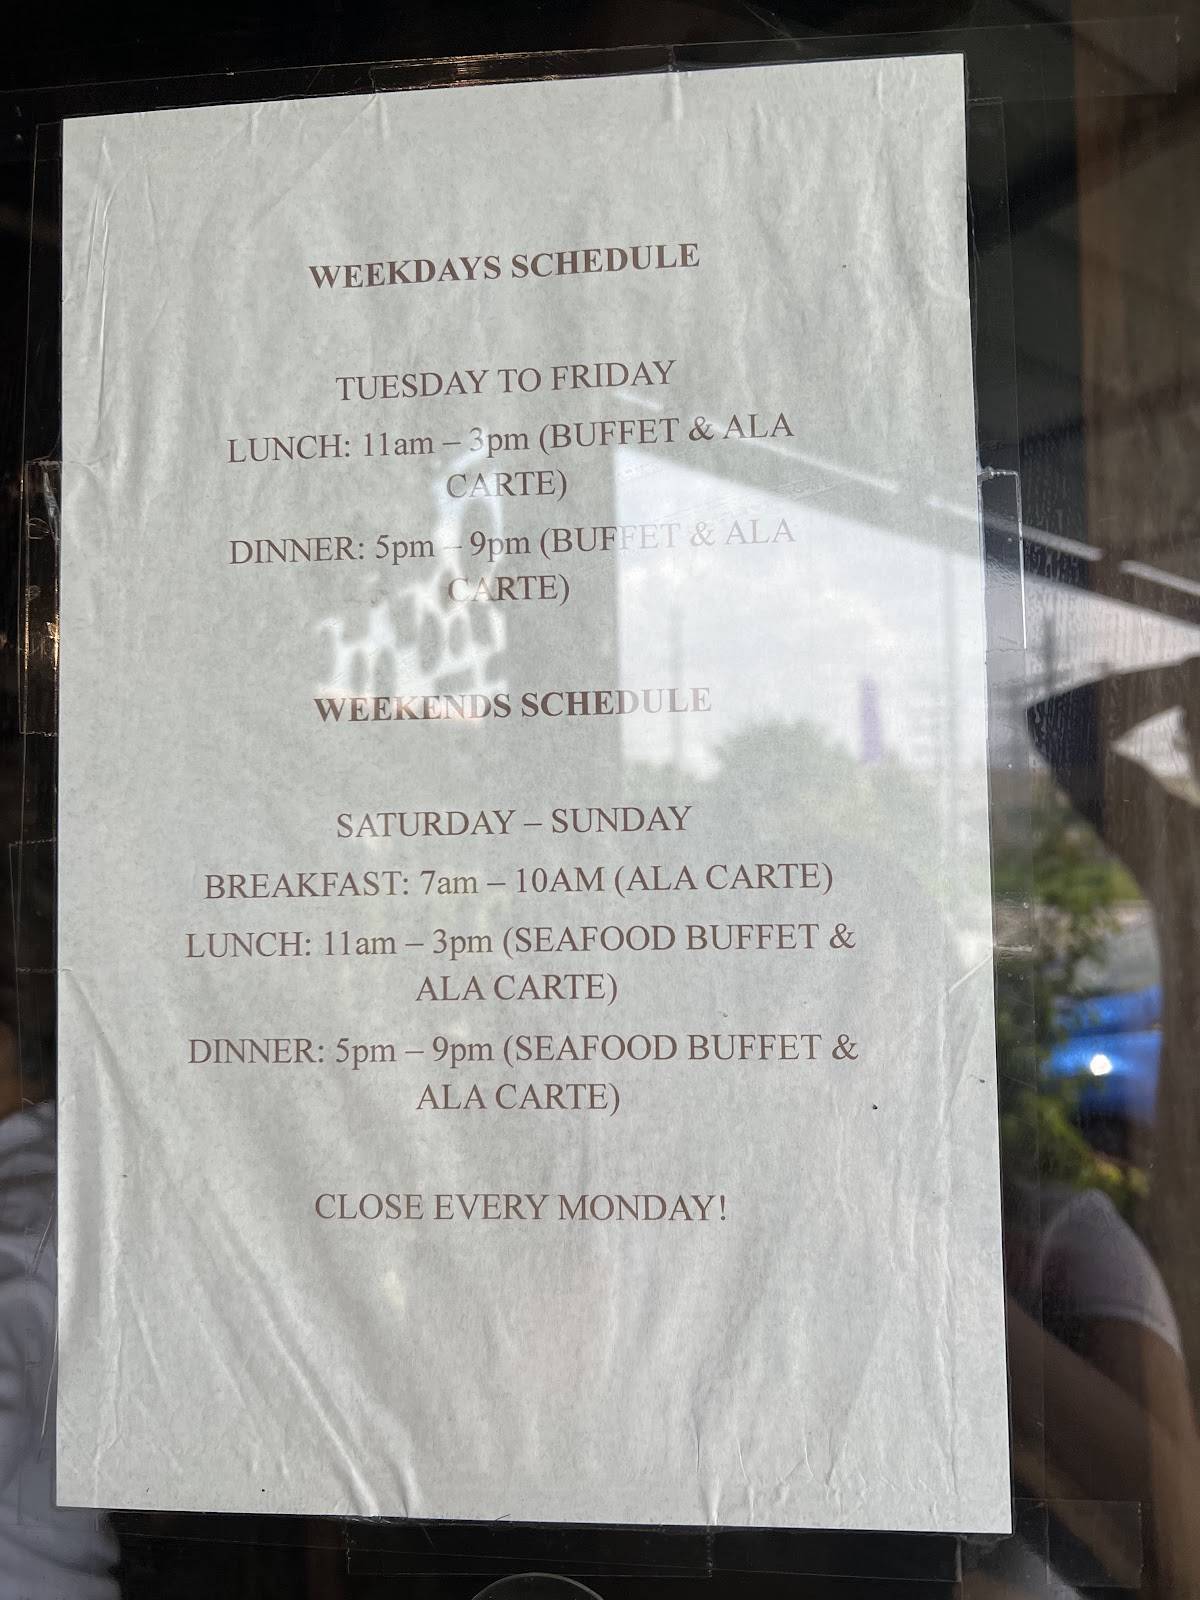 WEEKDAYS SCHEDULE
TUESDAY TO FRIDAY
LUNCH: 11am – 3pm (BUFFET & ALA
CARTE)
DINNER: 5pm – 9pm (BUFFET & ALA
CARTE)
WEEKENDS SCHEDULE
SATURDAY – SUNDAY
BREAKFAST: 7am – 10AM (ALA CARTE)
LUNCH: 11am – 3pm (SEAFOOD BUFFET &
ALA CARTE)
DINNER: 5pm – 9pm (SEAFOOD BUFFET &
ALA CARTE)
CLOSE EVERY MONDAY!